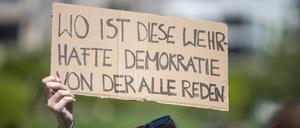 WO IST DIESE WEHR-
HAFTE DEMOKRATIE
VON DER ALLE REDEN